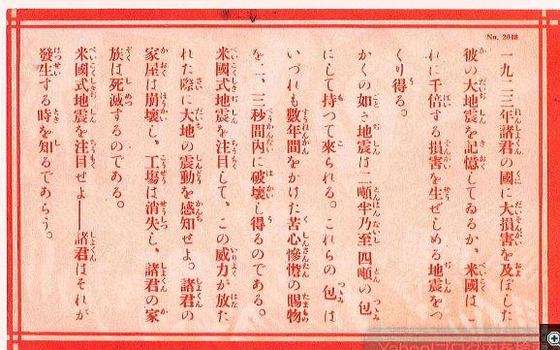 No. 2048
一九二三年諸君の國に大損害を及ぼした
彼の大地震を記憶してゐるか、米國はこ
れに千倍する損害を生ぜしめる地震をつ
くり得る。
かくの如き地震は二噸半乃至四噸の包
にして持つて來られる。これらの包は
いづれも數年間をかけた苦心慘憺の賜物
を二、三秒間內に破壞し得るのである。
米國式地震を注目して、この威力が放た
れた際に大地の震動を感知せよ。諸君の
家屋は崩壞し、工場は消失し、諸君の家
族は死滅するのである。
米國式地震を注目せよ――諸君はそれが
發生する時を知るであらう。